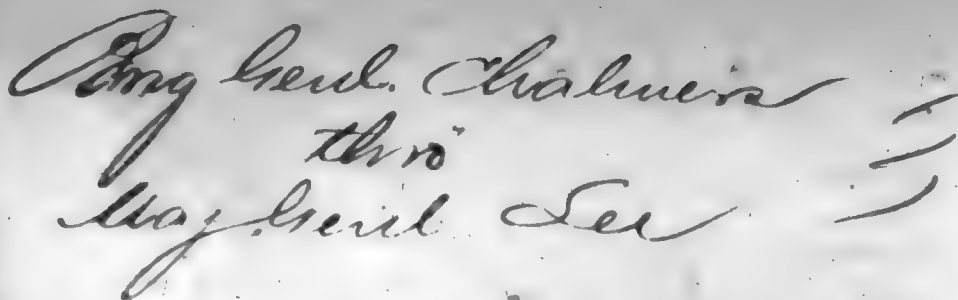 Brig Genl. Chalmers
thro
Maj. Genl Lee